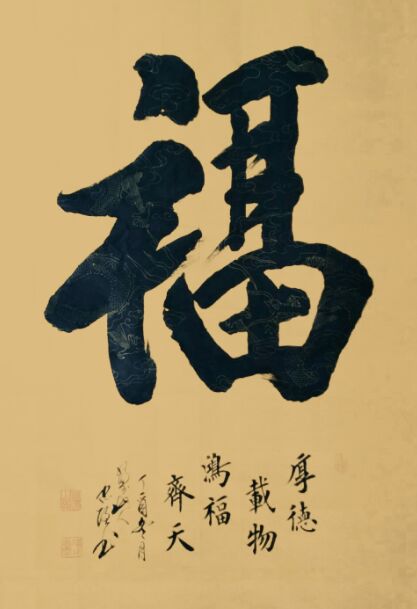 福
厚德
載物
鴻福
齊天
丁酉冬月
书